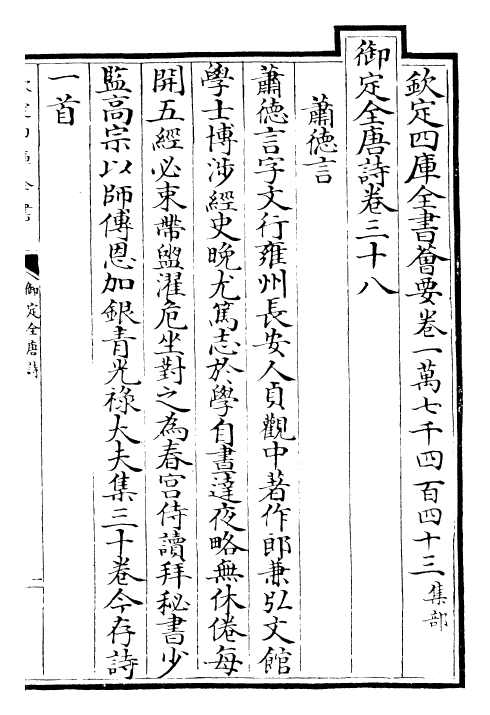 欽定四庫全書薈要卷一萬七千四百四十三集部
御定全唐詩卷三十八
蕭德言
蕭德言字文行雍州長安人貞觀中著作郎兼弘文館
學士博涉經史晚尤篤志於學自晝達夜略無休倦每
開五經必束帶盥濯危坐對之為春宮侍讀拜秘書少
監高宗以師傅恩加銀青光祿大夫集三十卷今存詩
一首
御定全唐詩